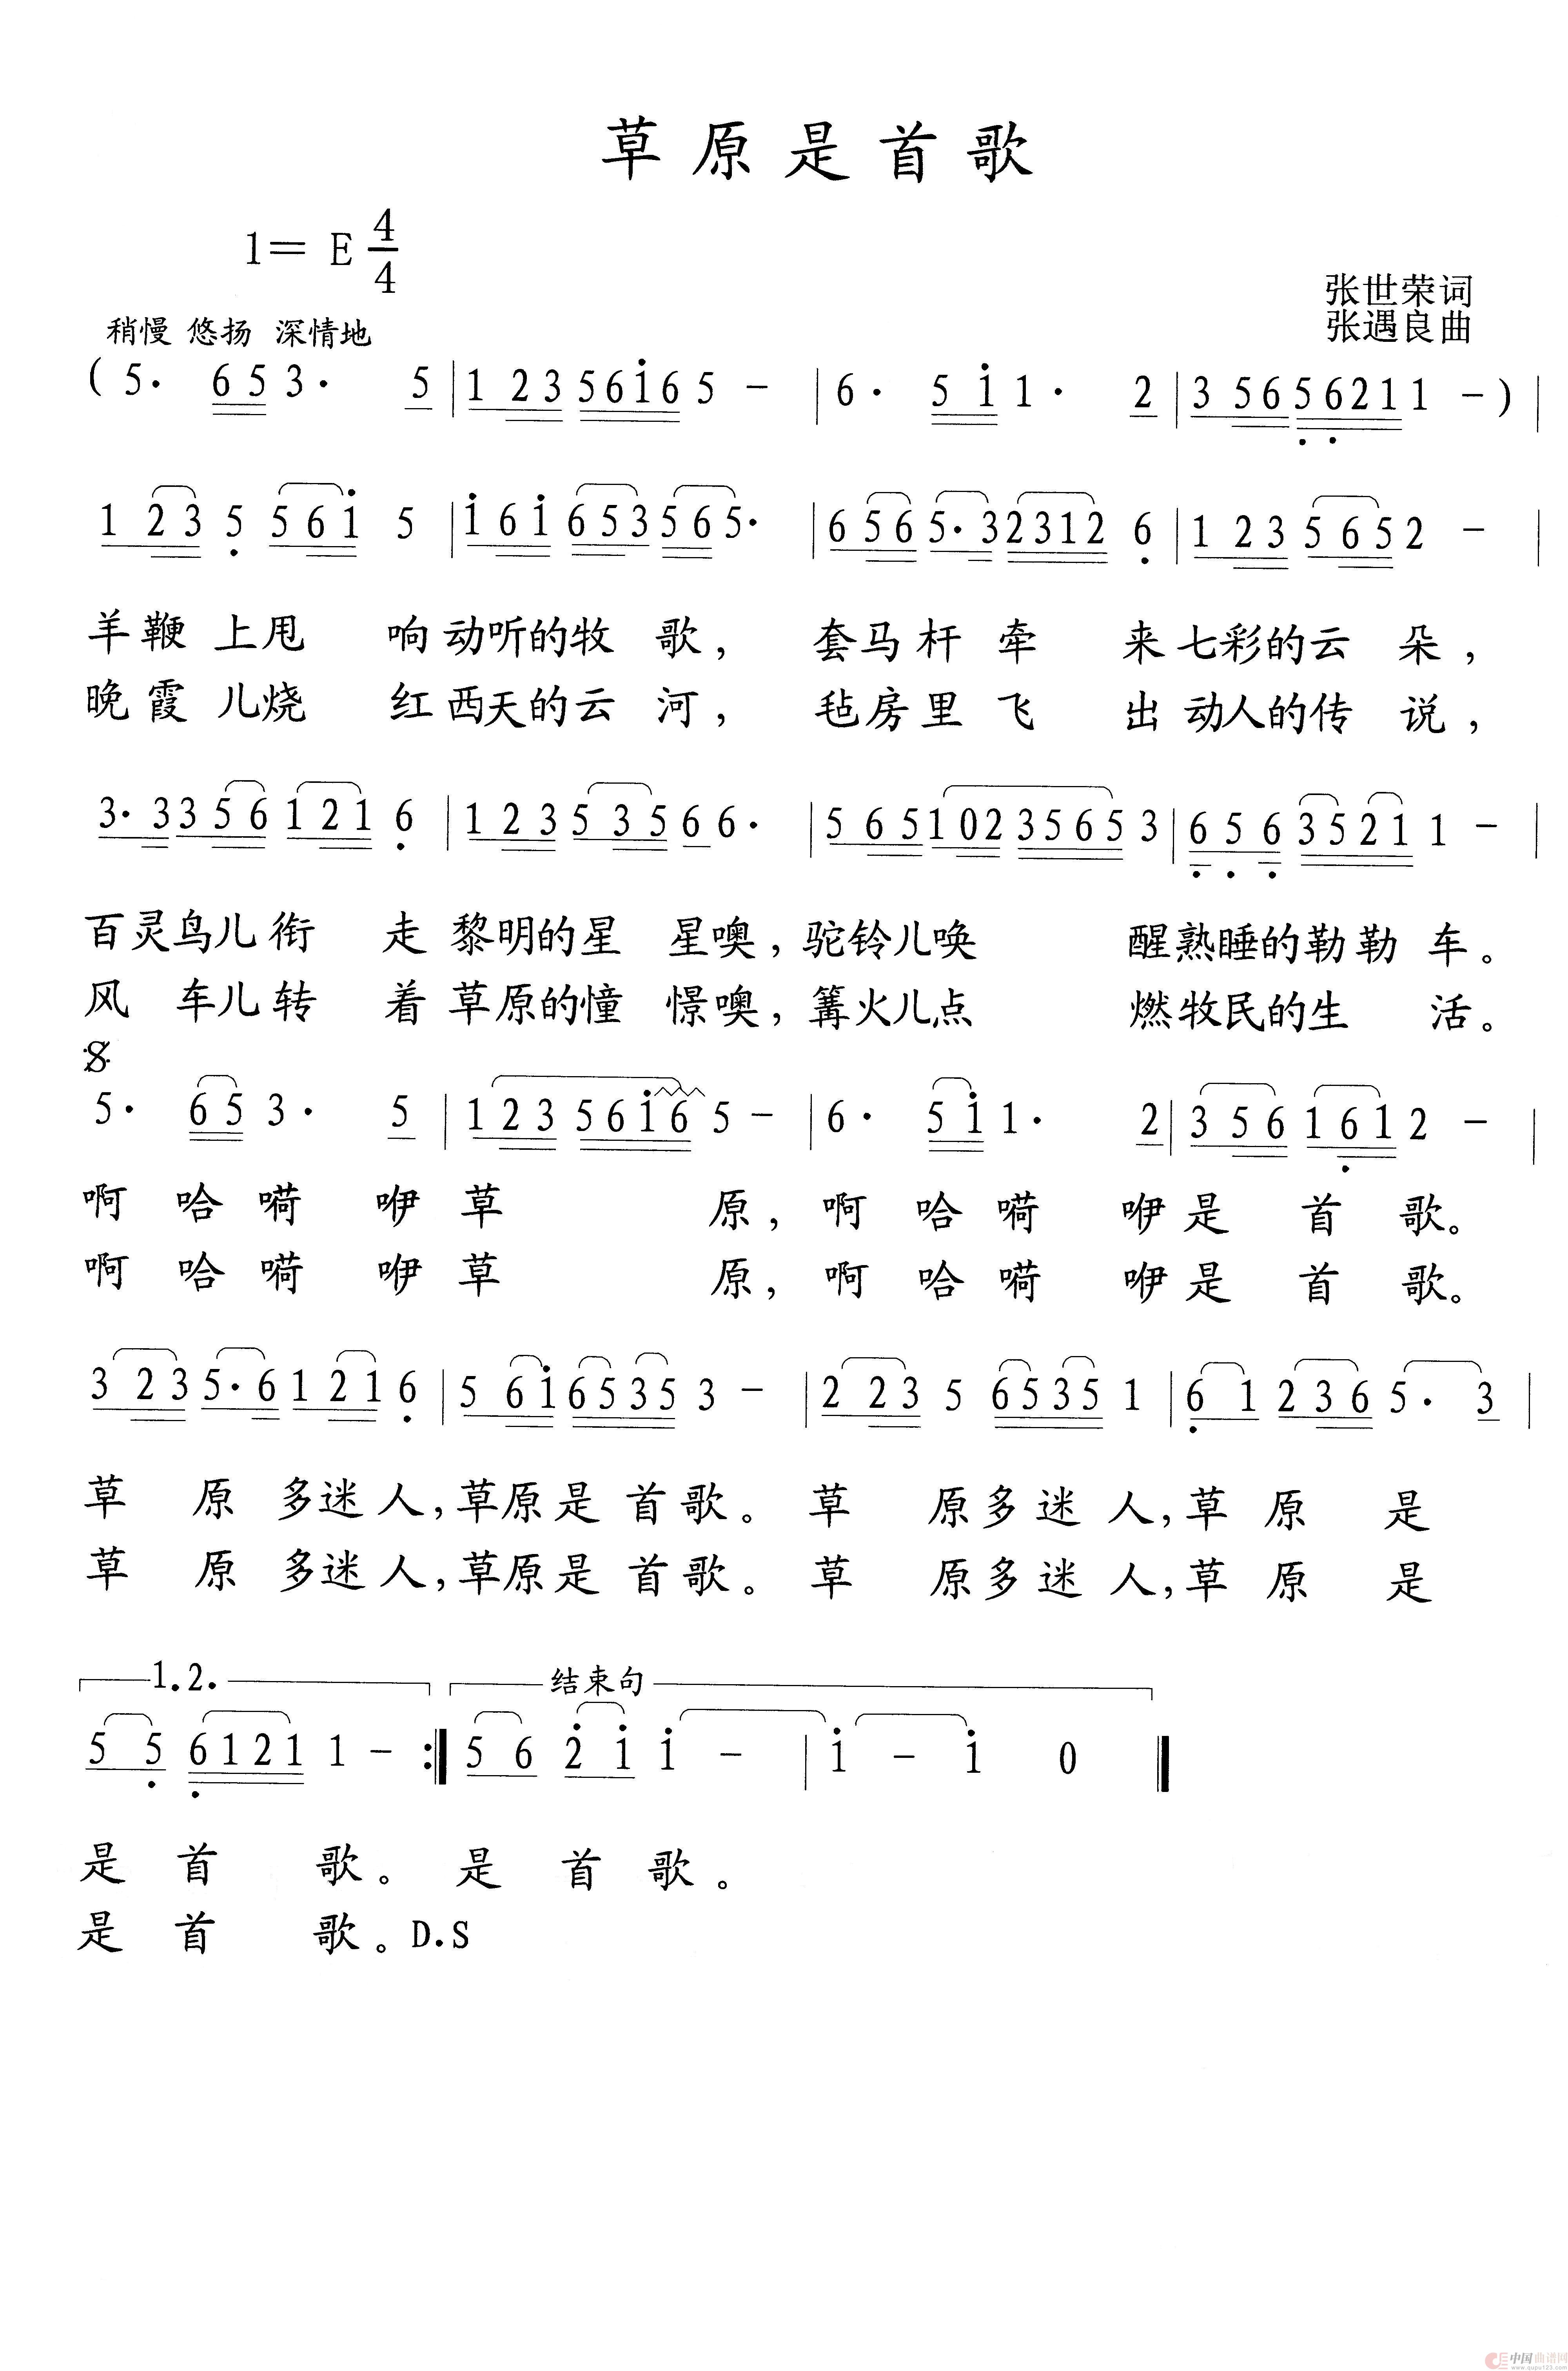 草原是首歌
1= E 4/4
张世荣词
稍慢 悠扬 深情地
张遇良曲
( 5· 6 5 3· 5 | 1 2 3 5 6 i 6 5 - | 6· 5 i 1· 2 | 3 5 6 5 6 2 1 1 - ) |
1 2 3 5 5 6 i 5 | i 6 i 6 5 3 5 6 5· | 6 5 6 5· 3 2 3 1 2 6 | 1 2 3 5 6 5 2 - |
羊鞭 上甩 响动听的牧 歌, 套马杆 牵 来七彩的云 朵,
晚霞 儿烧 红西天的云 河, 毡房里 飞 出动人的传 说,
3· 3 3 5 6 1 2 1 6 | 1 2 3 5 3 5 6 6· | 5 6 5 1 0 2 3 5 6 5 3 | 6 5 6 3 5 2 1 1 - |
百灵鸟儿衔 走黎明的星 星噢,驼铃儿唤 醒熟睡的勒勒车。
风 车儿转 着草原的憧 憬噢,篝火儿点 燃牧民的生 活。
5· 6 5 3· 5 | 1 2 3 5 6 i 6 5 - | 6· 5 i 1· 2 | 3 5 6 1 6 1 2 - |
啊 哈嗬 咿草 原,啊 哈嗬 咿是 首 歌。
啊 哈嗬 咿草 原,啊 哈嗬 咿是 首 歌。
3 2 3 5· 6 1 2 1 6 | 5 6 i 6 5 3 5 3 - | 2 2 3 5 6 5 3 5 1 | 6 1 2 3 6 5· 3 |
草 原 多迷人,草原是首歌。草 原多迷人,草原 是
草 原 多迷人,草原是首歌。草 原多迷人,草原 是
1.2. 结束句
5 5 6 1 2 1 1 - :| 5 6 2 i i - | i - i 0 ‖
是 首 歌。是 首 歌。
是 首 歌。D.S
中国曲谱网
www.qupu123.com